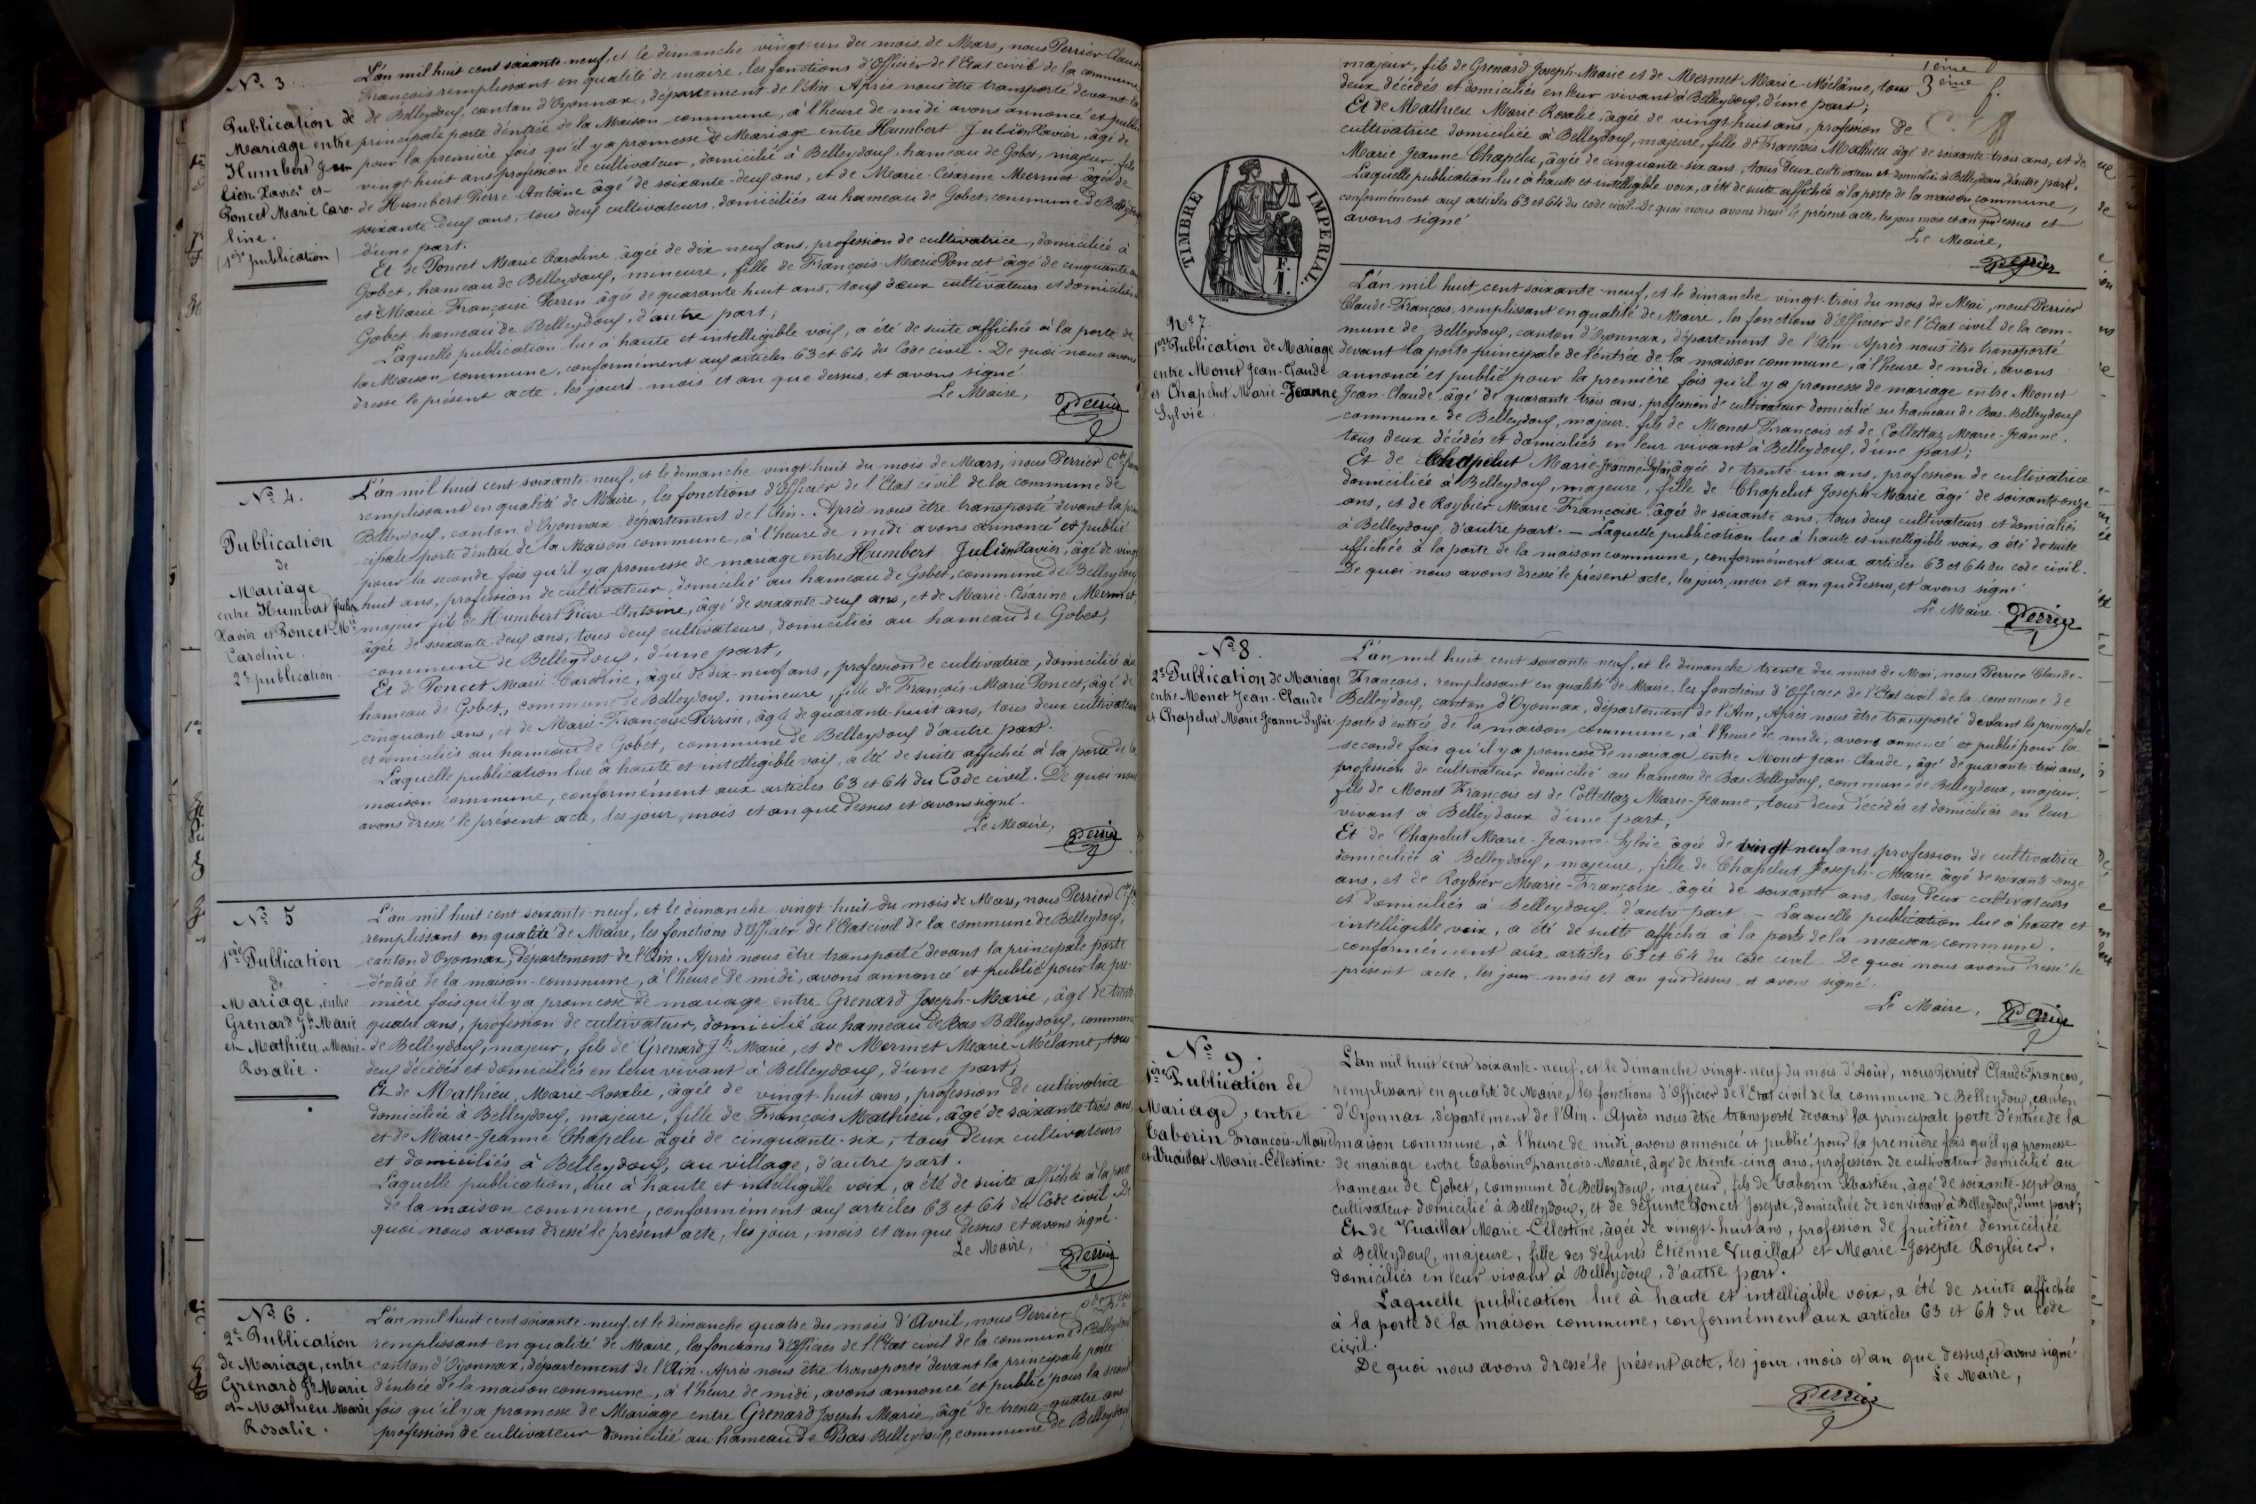 Nº 3
Publication de
Mariage entre
Humbert Ju-
lien Xavier et
Poncet Marie Caro-
line.
(1ère publication)
L'an mil huit cent soixante-neuf, et le dimanche vingt-un du mois de Mars, nous Perrier Claude
François remplissant en qualité de maire, les fonctions d'Officier de l'Etat civil de la commune
de Belleydoux, canton d'Oyonnax, département de l'Ain. Après nous être transporté devant la
principale porte d'entrée de la Maison commune, à l'heure de midi avons annoncé et publié
pour la première fois qu'il y a promesse de Mariage entre Humbert Julien Xavier, âgé de
vingt huit ans, profession de cultivateur, domicilié à Belleydoux, hameau de Gobet, majeur, fils
de Humbert Pierre Antoine âgé de soixante-deux ans, et de Marie-Césarine Mermet âgée de
soixante deux ans, tous deux cultivateurs, domiciliés au hameau de Gobet, commune de Belleydoux
d'une part.
Et de Poncet Marie Caroline, âgée de dix neuf ans, profession de cultivatrice, domiciliée à
Gobet, hameau de Belleydoux, mineure, fille de François-Marie Poncet âgé de cinquante ans
et Marie Françoise Perrin âgée de quarante huit ans, tous deux cultivateurs et domiciliés
Gobet hameau de Belleydoux, d'autre part;
Laquelle publication lue à haute et intelligible voix, a été de suite affichée à la porte de
la Maison commune, conformément aux articles 63 et 64 du Code civil. De quoi nous avons
dressé le présent acte, les jours mois et an que dessus, et avons signé
Le Maire,
Perrier
Nº 4.
Publication
de
Mariage
entre Humbert Julien
Xavier et Poncet Mie
Caroline.
2e publication.
L'an mil huit cent soixante-neuf, et le dimanche vingt-huit du mois de Mars, nous Perrier Cde fran
remplissant en qualité de Maire, les fonctions d'Officier de l'Etat civil de la commune de
Belleydoux, canton d'Oyonnax, département de l'Ain. Après nous être transporté devant la prin
cipale porte d'entrée de la Maison commune, à l'heure de midi avons annoncé et publié
pour la seconde fois qu'il y a promesse de mariage entre Humbert Julien Xavier, âgé de vingt
huit ans, profession de cultivateur, domicilié au hameau de Gobet, commune de Belleydoux
majeur fils de Humbert Pierre-Antoine, âgé de soixante-deux ans, et de Marie-Césarine Mermet,
âgée de soixante deux ans, tous deux cultivateurs, domiciliés au hameau de Gobet,
commune de Belleydoux, d'une part,
Et de Poncet Marie Caroline, âgée de dix-neuf ans, profession de cultivatrice, domiciliée au
hameau de Gobet, commune de Belleydoux, mineure, fille de François-Marie Poncet, âgé de
cinquant ans, et de Marie-Françoise Perrin, âgée de quarante-huit ans, tous deux cultivateurs
et domiciliés au hameau de Gobet, commune de Belleydoux d'autre part.
Laquelle publication lue à haute et intelligible voix, a été de suite affichée à la porte de la
maison commune, conformément aux articles 63 et 64 du Code civil. De quoi nous
avons dressé le présent acte, les jour, mois et an que dessus et avons signé.
Le Maire,
Perrier
Nº 5
1ère Publication
de
Mariage, entre
Grenard Jh Marie
et Mathieu Marie-
Rosalie.
L'an mil huit cent soixante-neuf, et le dimanche vingt-huit du mois de Mars, nous Perrier Cde
remplissant en qualité de Maire, les fonctions d'Officier de l'Etat civil de la commune de Belleydoux,
canton d'Oyonnax, département de l'Ain. Après nous être transporté devant la principale porte
d'entrée de la maison commune, à l'heure de midi, avons annoncé et publié pour la pre-
mière fois qu'il y a promesse de mariage entre Grenard Joseph-Marie, âgé de trente
quatre ans, profession de cultivateur, domicilié au hameau de Bas Belleydoux, commune
de Belleydoux, majeur, fils de Grenard Jh Marie, et de Mermet Marie-Mélanie, tous
deux décédés et domiciliés en leur vivant à Belleydoux, d'une part;
Et de Mathieu, Marie-Rosalie, âgée de vingt-huit ans, profession de cultivatrice
domiciliée à Belleydoux, majeure, fille de François Mathieu, âgé de soixante-trois ans
et de Marie-Jeanne Chapelu âgée de cinquante-six, tous deux cultivateurs
et domiciliés à Belleydoux, au village, d'autre part.
Laquelle publication, lue à haute et intelligible voix, a été de suite affichée à la porte
de la maison commune, conformément aux articles 63 et 64 du Code civil. De
quoi nous avons dressé le présent acte, les jour, mois et an que dessus et avons signé.
Le Maire,
Perrier
Nº 6.
2e Publication
de Mariage, entre
Grenard Jh Marie
et Mathieu Marie
Rosalie.
L'an mil huit cent soixante-neuf, et le dimanche quatre du mois d'Avril, nous Perrier Cde Fcois
remplissant en qualité de Maire, les fonctions d'Officier de l'Etat civil de la commune de Belleydoux
canton d'Oyonnax, département de l'Ain. Après nous être transporté devant la principale porte
d'entrée de la maison commune, à l'heure de midi, avons annoncé et publié pour la seconde
fois qu'il y a promesse de Mariage entre Grenard Joseph Marie, âgé de trente-quatre ans
profession de cultivateur domicilié au hameau de Bas-Belleydoux, commune de Belleydoux
majeur, fils de Grenard Joseph-Marie et de Mermet Marie-Mélanie, tous
deux décédés et domiciliés en leur vivant à Belleydoux, d'une part;
Et de Mathieu Marie Rosalie, âgée de vingt huit ans, profession de
cultivatrice domiciliée à Belleydoux, majeure, fille de François Mathieu âgé de soixante-trois ans, et de
Marie Jeanne Chapelu, âgée de cinquante-six ans, tous deux cultivateurs et domiciliés à Belleydoux, d'autre part.
Laquelle publication lue à haute et intelligible voix, a été de suite affichée à la porte de la maison commune,
conformément aux articles 63 et 64 du code civil. De quoi nous avons dressé le présent acte, les jour mois et an que dessus et
avons signé
Le Maire,
Perrier
TIMBRE IMPERIAL
F.
1.
Nº 7.
1ère Publication de Mariage
entre Monet Jean-Claude
et Chapelut Marie-Jeanne
Sylvie.
L'an mil huit cent soixante-neuf, et le dimanche vingt-trois du mois de Mai, nous Perrier
Claude-François, remplissant en qualité de Maire, les fonctions d'Officier de l'Etat civil de la com-
mune de Belleydoux, canton d'Oyonnax, département de l'Ain. Après nous être transporté
devant la porte principale de l'entrée de la maison commune, à l'heure de midi, avons
annoncé et publié pour la première fois qu'il y a promesse de mariage entre Monet
Jean-Claude âgé de quarante-trois ans, profession de cultivateur domicilié au hameau de Bas-Belleydoux
commune de Belleydoux, majeur, fils de Monet François et de Collettaz Marie-Jeanne.
tous deux décédés et domiciliés en leur vivant à Belleydoux, d'une part;
Et de Chapelut Marie Jeanne-Sylvie âgée de trente un ans, profession de cultivatrice
domiciliée à Belleydoux, majeure, fille de Chapelut Joseph-Marie âgé de soixante-onze
ans, et de Roybier Marie-Françoise, âgée de soixante ans, tous deux cultivateurs et domiciliés
à Belleydoux, d'autre part. — Laquelle publication lue à haute et intelligible voix, a été de suite
affichée à la porte de la maison commune, conformément aux articles 63 et 64 du code civil.
De quoi nous avons dressé le présent acte, les jour, mois et an que dessus, et avons signé
Le Maire
Perrier
Nº 8.
2e Publication de Mariage
entre Monet Jean-Claude
et Chapelut Marie Jeanne-Sylvie
L'an mil huit cent soixante-neuf, et le dimanche trente du mois de Mai, nous Perrier Claude-
François, remplissant en qualité de Maire, les fonctions d'Officier de l'Etat civil de la commune de
Belleydoux, canton d'Oyonnax, département de l'Ain, Après nous être transporté devant la principale
porte d'entrée de la maison commune, à l'heure de midi, avons annoncé et publié pour la
seconde fois qu'il y a promesse de mariage entre Monet Jean Claude, âgé de quarante-trois ans,
profession de cultivateur domicilié au hameau de Bas Belleydoux, commune de Belleydoux, majeur,
fils de Monet François et de Collettaz Marie-Jeanne, tous deux décédés et domiciliés en leur
vivant à Belleydoux d'une part;
Et de Chapelut Marie-Jeanne-Sylvie âgée de vingt neuf ans, profession de cultivatrice
domiciliée à Belleydoux, majeure, fille de Chapelut Joseph-Marie âgé de soixante-onze
ans, et de Roybier Marie-Françoise, âgée de soixante ans, tous deux cultivateurs
et domiciliés à Belleydoux, d'autre part. — Laquelle publication lue à haute et
intelligible voix, a été de suite affichée à la porte de la maison commune,
conformément aux articles 63 et 64 du Code civil. De quoi nous avons dressé le
présent acte, les jour mois et an que dessus et avons signé.
Le Maire,
Perrier
Nº 9.
1ère Publication de
Mariage, entre
Taborin François-Marie
et Vuaillat Marie-Célestine.
L'an mil huit cent soixante-neuf, et le dimanche vingt-neuf du mois d'Août, nous Perrier Claude-François,
remplissant en qualité de Maire, les fonctions d'Officier de l'Etat civil de la commune de Belleydoux, canton
d'Oyonnax, département de l'Ain. Après nous être transporté devant la principale porte d'entrée de la
maison commune, à l'heure de midi, avons annoncé et publié pour la première fois qu'il y a promesse
de mariage entre Taborin François-Marie, âgé de trente-cinq ans, profession de cultivateur domicilié au
hameau de Gobet, commune de Belleydoux, majeur, fils de Taborin Sébastien, âgé de soixante-sept ans,
cultivateur domicilié à Belleydoux, et de défunte Poncet Josepte, domiciliée de son vivant à Belleydoux, d'une part;
Et de Vuaillat Marie-Célestine, âgée de vingt-huit ans, profession de fruitière domiciliée
à Belleydoux, majeure, fille des défunts Etienne Vuaillat et Marie-Josepte Roybier,
domiciliés en leur vivant à Belleydoux, d'autre part.
Laquelle publication lue à haute et intelligible voix, a été de suite affichée
à la porte de la maison commune, conformément aux articles 63 et 64 du Code
civil.
De quoi nous avons dressé le présent acte, les jour, mois et an que dessus, et avons signé
Le Maire,
Perrier